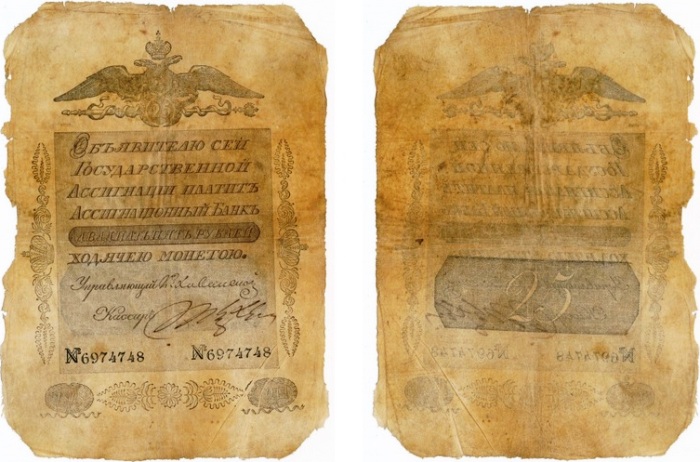 Объявителю сей
Государственной
Ассигнации платитъ
Ассигнационный Банкъ
двадцать пять рублей
ходячею монетою.
Управляющий
Кассиръ
№6974748 №6974748
25